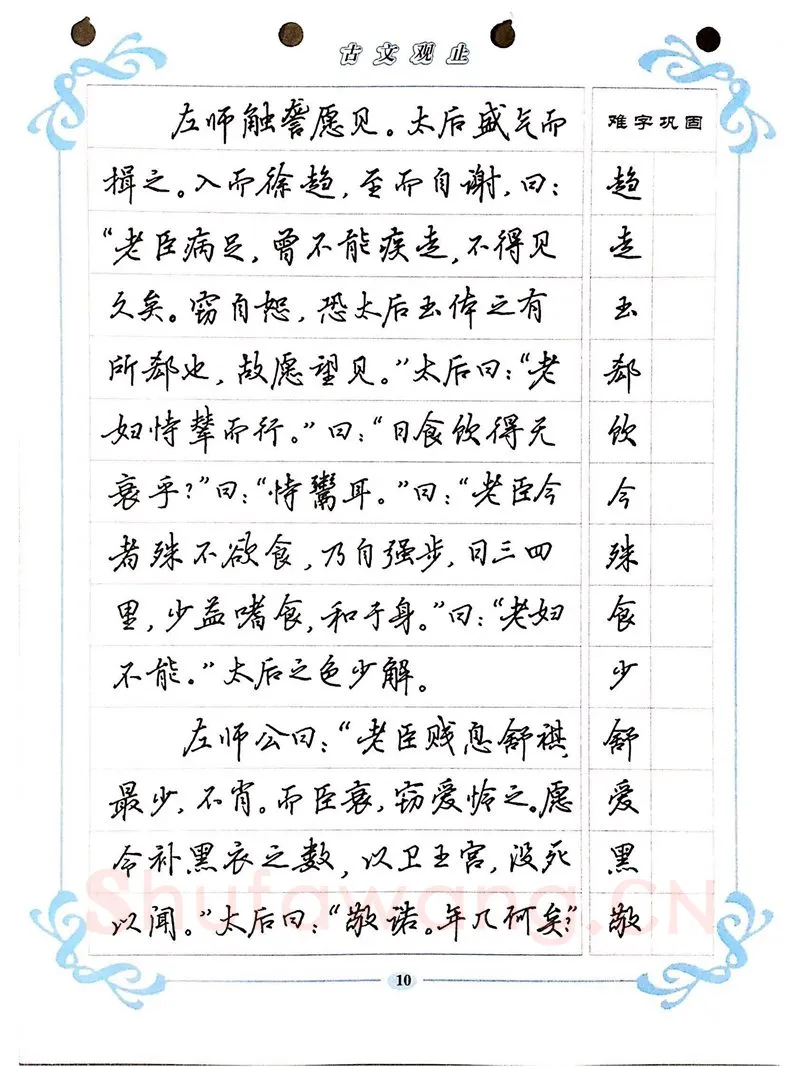 古文观止
左师触詟愿见。太后盛气而
揖之。入而徐趋，至而自谢，曰：
“老臣病足，曾不能疾走，不得见
久矣。窃自恕，恐太后玉体之有
所郄也，故愿望见。”太后曰：“老
妇恃辇而行。”曰：“日食饮得无
衰乎？”曰：“恃鬻耳。”曰：“老臣今
者殊不欲食，乃自强步，日三四
里，少益嗜食，和于身。”曰：“老妇
不能。”太后之色少解。
左师公曰：“老臣贱息舒祺，
最少，不肖。而臣衰，窃爱怜之。愿
令补黑衣之数，以卫王宫，没死
以闻。”太后曰：“敬诺。年几何矣？”
难字巩固
趋
走
玉
郄
饮
今
殊
食
少
舒
爱
黑
敬
10
Shufawang.CN